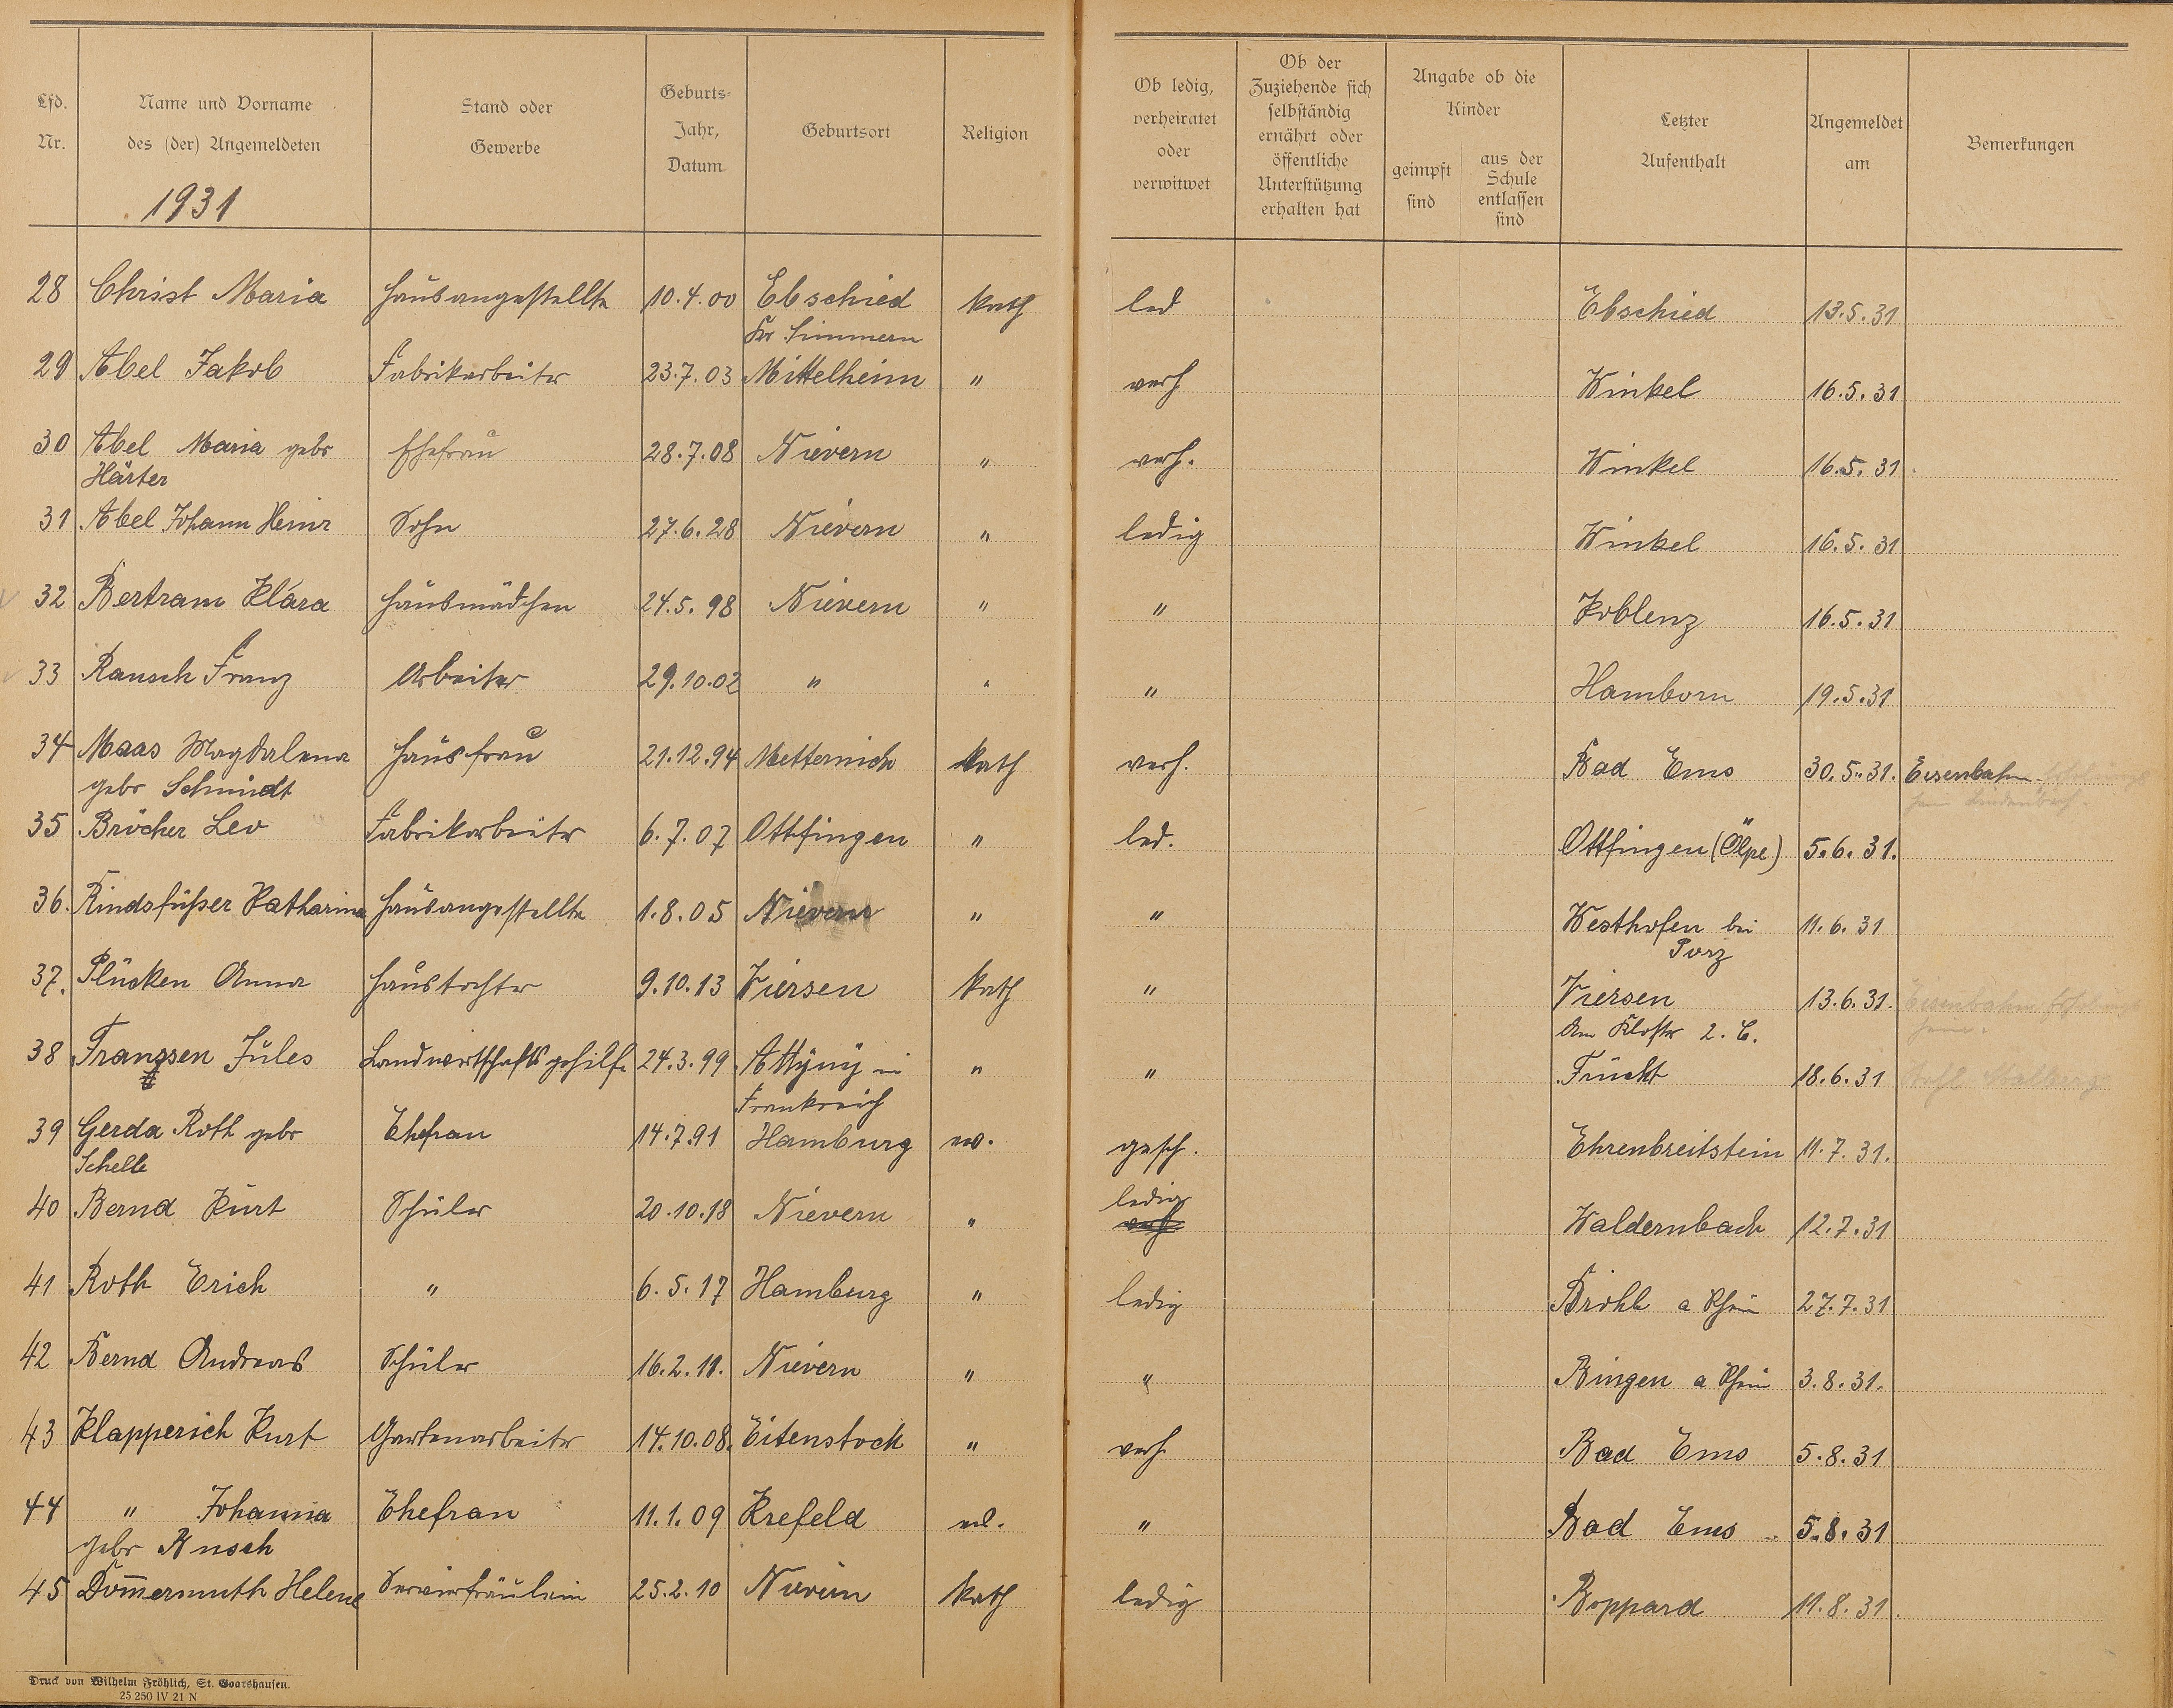 Lfd. Nr. | Name und Vorname des (der) Angemeldeten | Stand oder Gewerbe | Geburts-Jahr, Datum | Geburtsort | Religion | Ob ledig, verheiratet oder verwitwet | Ob der Zuziehende sich selbständig ernährt oder öffentliche Unterstützung erhalten hat | Angabe ob die Kinder geimpft sind | aus der Schule entlassen sind | Letzter Aufenthalt | Angemeldet am | Bemerkungen
1931
28 Christ Maria Hausangestellte 10.4.00 Ebschied kath led Ebschied 13.5.31
Kr. Simmern
29 Abel Jakob Fabrikarbeiter 23.7.03 Mittelheim " verh Winkel 16.5.31
30 Abel Maria gebr Ehefrau 28.7.08 Nievern " verh. Winkel 16.5.31
Härter
31 Abel Johann Heinr Sohn 27.6.28 Nievern " ledig Winkel 16.5.31
32 Bertram Klara Hausmädchen 24.5.98 Nievern " " Koblenz 16.5.31
33 Rausch Franz Arbeiter 29.10.02 " " " Hamborn 19.5.31
34 Maas Magdalena Hausfrau 21.12.94 Metternich kath verh. Bad Ems 30.5.31. Eisenbahn-Erholungs
gebr Schmidt heim Lindenbach.
35 Bröcher Leo Fabrikarbeiter 6.7.07 Ottfingen " led. Ottfingen (Ölpe) 5.6.31.
36. Rindsfüßer Katharina Hausangestellte 1.8.05 Nievern " " Westhofen bei 11.6.31
Porz
37. Plücken Anna Haustochter 9.10.13 Viersen kath " Viersen 13.6.31. Eisenbahn Erholungs
Am Kloster 2. C. heim.
38 Franssen Jules Landwirtschaftsgehilfe 24.3.99 Attÿnÿ in " " Frücht 18.6.31
Frankreich
39 Gerda Roth gebr Ehefrau 14.7.91 Hamburg ev. gesch. Ehrenbreitstein 11.7.31.
Schelle
ledig
40 Bernd Kurt Schüler 20.10.18 Nievern " verh. Waldernbach 12.7.31
41 Roth Erich " 6.5.17 Hamburg " ledig Brohl a Rhein 27.7.31
42 Bernd Andreas Schüler 16.2.11. Nievern " " Bingen a Rhein 3.8.31.
43 Klapperich Kurt Gartenarbeiter 14.10.08. Eitenstock " verh Bad Ems 5.8.31
44 " Johanna Ehefrau 11.1.09 Krefeld " Bad Ems 5.8.31
gebr Busch
45 Dom̅ermuth Helene Servierfräulein 25.2.10 Nievern kath ledig Boppard 11.8.31.
Druck von Wilhelm Fröhlich, St. Goarshausen.
25 250 IV 21 N